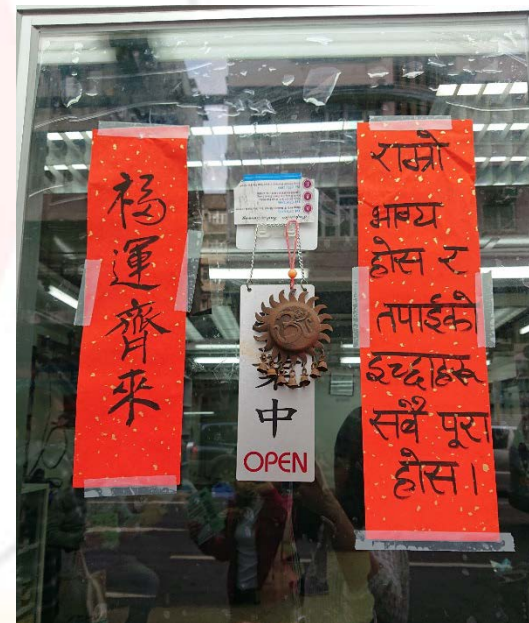 福運齊來
業中
OPEN
राम्रो
भाग्य
होस र
तपाईको
इच्छाहरू
सबै पूरा
होस।